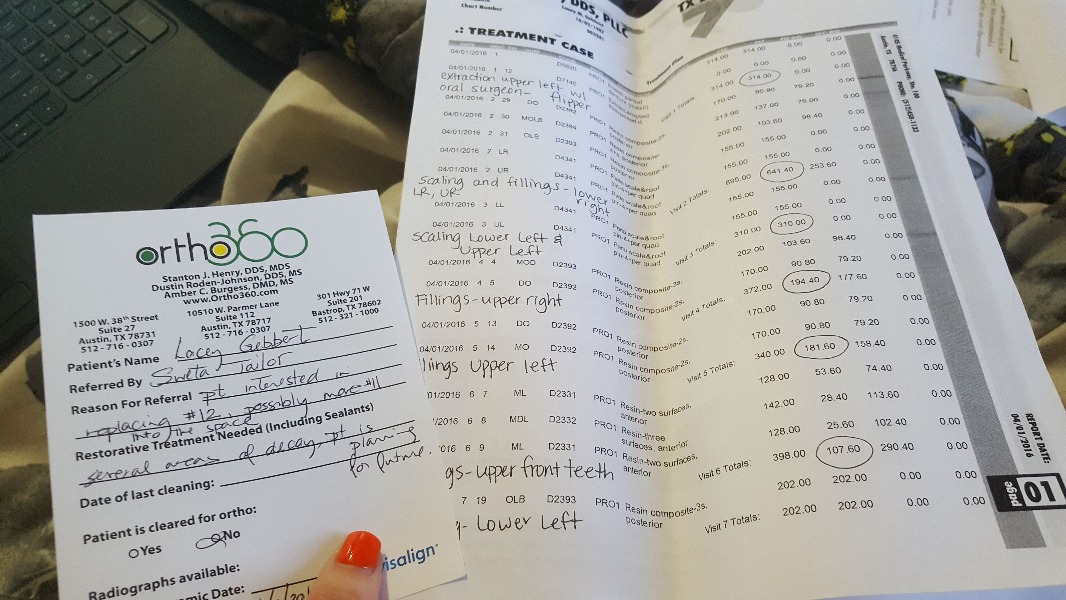 ortho360
Stanton J. Henry, DDS, MDS
Dustin Roden-Johnson, DDS, MS
Amber C. Burgess, DMD, MS
www.Ortho360.com
1500 W. 38th Street
Suite 27
Austin, TX 78731
512-716-0307
10510 W. Parmer Lane
Suite 112
Austin, TX 78717
512-716-0307
301 Hwy 71 W
Suite 201
Bastrop, TX 78602
512-321-1000
Patient's Name Lacey Gebbert
Referred By Sweta Tailor
Reason For Referral pt interested in
replacing #12, possibly move #11
into the space
Restorative Treatment Needed (Including Sealants)
several areas of decay, pt is planning
for future.
Date of last cleaning:
Patient is cleared for ortho:
Yes No
Radiographs available:
mic Date:
visalign
DDS, PLLC
Chart Number
TX
.: TREATMENT CASE
Treatment Plan
04/01/2016 1 D5820 PRO1 314.00 314.00 0.00 0.00
04/01/2016 1 12 D7140 PRO1 0.00 0.00 0.00
extraction upper left w/
oral surgeon- flipper
Visit 1 Totals: 314.00 314.00 0.00 0.00
04/01/2016 2 29 DO D2392 PRO1 Resin composite-2s, posterior 170.00 90.80 79.20 0.00
04/01/2016 2 30 MOLB D2394 PRO1 213.00 137.00 76.00 0.00
04/01/2016 2 31 OLB PRO1 202.00 103.60 98.40 0.00
04/01/2016 2 LR D4341 PRO1 Perio scale&root pln-4+per quad 155.00 155.00 0.00 0.00
04/01/2016 2 UR D4341 PRO1 Perio scale&root pln-4+per quad 155.00 155.00 0.00 0.00
Scaling and fillings - lower right
LR, UR
Visit 2 Totals: 895.00 641.40 253.60 0.00
04/01/2016 3 LL D4341 PRO1 Perio scale&root pln-4+per quad 155.00 155.00 0.00 0.00
04/01/2016 3 UL D4341 PRO1 Perio scale&root pln-4+per quad 155.00 155.00 0.00 0.00
Scaling Lower Left &
Upper Left
Visit 3 Totals: 310.00 310.00 0.00 0.00
04/01/2016 4 4 MOD D2393 PRO1 posterior 202.00 103.60 98.40 0.00
04/01/2016 4 5 DO D2392 PRO1 Resin composite-2s, posterior 170.00 90.80 79.20 0.00
Fillings - upper right
Visit 4 Totals: 372.00 194.40 177.60 0.00
04/01/2016 5 13 DO D2392 PRO1 Resin composite-2s, posterior 170.00 90.80 79.20 0.00
04/01/2016 5 14 MO D2392 PRO1 Resin composite-2s, posterior 170.00 90.80 79.20 0.00
llings Upper left
Visit 5 Totals: 340.00 181.60 158.40 0.00
01/2016 6 7 ML D2331 PRO1 Resin-two surfaces, anterior 128.00 53.60 74.40 0.00
/2016 6 8 MDL D2332 PRO1 Resin-three surfaces, anterior 142.00 28.40 113.60 0.00
016 6 9 ML D2331 PRO1 Resin-two surfaces, anterior 128.00 25.60 102.40 0.00
gs- upper front teeth
Visit 6 Totals: 398.00 107.60 290.40 0.00
7 19 OLB D2393 PRO1 Resin composite-3s, posterior 202.00 202.00 0.00 0.00
- Lower Left
Visit 7 Totals: 202.00 202.00 0.00 0.00
REPORT DATE:
04/01/2016
page 01